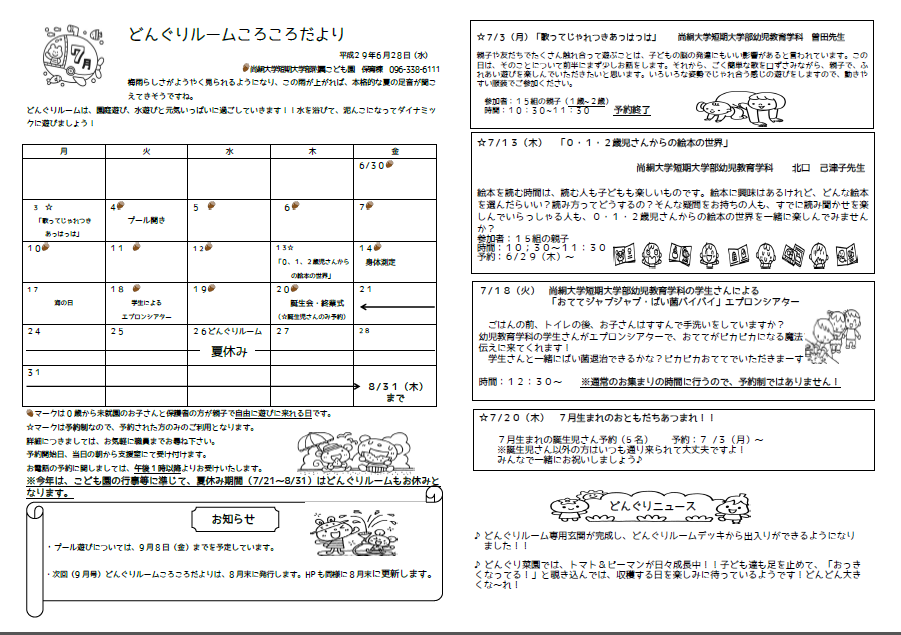 どんぐりルームころころだより
7月
平成２９年６月２８日（水）
尚絅大学短期大学部附属こども園　保育棟　096-338-6111
梅雨らしさがようやく見られるようになり、この雨が上がれば、本格的な夏の足音が聞こ
えてきそうですね。
どんぐりルームは、園庭遊び、水遊びと元気いっぱいに過ごしていきます！！水を浴びて、泥んこになってダイナミッ
クに遊びましょう！
月　火　水　木　金
6/30
3　☆　4　5　6　7
「歌ってじゃれつき
あっはっは」
プール開き
10　11　12　13☆　14
「０、１、２歳児さんから
の絵本の世界」
身体測定
17　18　19　20　21
海の日
学生による
エプロンシアター
誕生会・終業式
（☆誕生児さんのみ予約）
24　25　26どんぐりルーム　27　28
夏休み
31
8/31（木）
まで
マークは０歳から未就園のお子さんと保護者の方が親子で自由に遊びに来れる日です。
☆マークは予約制なので、予約された方のみのご利用となります。
詳細につきましては、お気軽に職員までお尋ね下さい。
予約開始日、当日の朝から支援室にて受け付けます。
お電話の予約に関しましては、午後１時以降よりお受けいたします。
※今年は、こども園の行事等に準じて、夏休み期間（7/21～8/31）はどんぐりルームもお休みと
なります。
お知らせ
・プール遊びについては、９月８日（金）までを予定しています。
・次回（９月号）どんぐりルームころころだよりは、８月末に発行します。HPも同様に８月末に更新します。
☆７/３（月）「歌ってじゃれつきあっはっは」　　尚絅大学短期大学部幼児教育学科　曽田先生
親子や友だちでたくさん触れ合って遊ぶことは、子どもの脳の発達にもいい影響があると言われています。この
日は、そのことについて前半にまず少しお話をします。それから、ごく簡単な歌を口ずさみながら、親子で、ふ
れあい遊びを楽しんでいただきたいと思います。いろいろな姿勢でじゃれ合う感じの遊びをしますので、動きや
すい服装でご参加ください。
参加者：１５組の親子（１歳～２歳）
時間：１０：３０～１１：３０　　予約終了
☆７/１３（木）　「０・１・２歳児さんからの絵本の世界」
尚絅大学短期大学部幼児教育学科　　北口　己津子先生
絵本を読む時間は、読む人も子どもも楽しいものです。絵本に興味はあるけれど、どんな絵本
を選んだらいい？読み方ってどうするの？そんな疑問をお持ちの人も、すでに読み聞かせを楽
しんでいらっしゃる人も、０・１・２歳児さんからの絵本の世界を一緒に楽しんでみません
か？
参加者：１５組の親子
時間：１０；３０～１１：３０
予約：６/２９（木）～
７/１８（火）　尚絅大学短期大学部幼児教育学科の学生さんによる
「おててジャブジャブ・ばい菌バイバイ」エプロンシアター
ごはんの前、トイレの後、お子さんはすすんで手洗いをしていますか？
幼児教育学科の学生さんがエプロンシアターで、おててがピカピカになる魔法を
伝えに来てくれます！
学生さんと一緒にばい菌退治できるかな？ピカピカおててでいただきまーす！
時間：１２：３０～　　※通常のお集まりの時間に行うので、予約制ではありません！
☆７/２０（木）　７月生まれのおともだちあつまれ！！
７月生まれの誕生児さん予約（５名）　　予約：７ /３（月）～
※誕生児さん以外の方はいつも通り来られて大丈夫ですよ！
みんなで一緒にお祝いしましょう♪
どんぐりニュース
♪ どんぐりルーム専用玄関が完成し、どんぐりルームデッキから出入りができるようになり
ました！！
♪ どんぐり菜園では、トマト＆ピーマンが日々成長中！！子ども達も足を止めて、「おっき
くなってる！」と覗き込んでは、収穫する日を楽しみに待っているようです！どんどん大き
くな～れ！